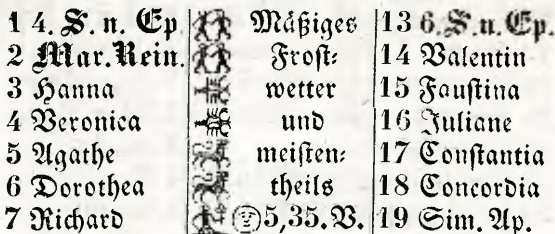 1 4. S. n. Ep Mäßiges 13 6. S. n. Ep.
2 Mar. Rein. Frost= 14 Valentin
3 Hanna wetter 15 Faustina
4 Veronica und 16 Juliane
5 Agathe meisten= 17 Constantia
6 Dorothea theils 18 Concordia
7 Richard 5,35. V. 19 Sim. Ap.